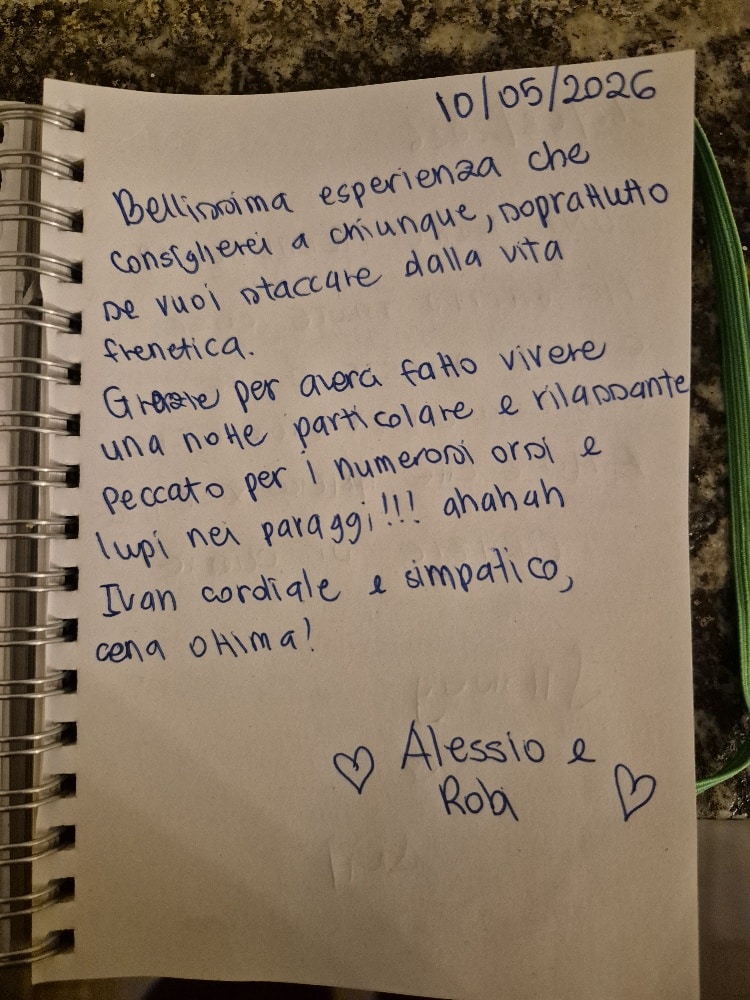 10/05/2026
Bellissima esperienza che
consiglierei a chiunque, soprattutto
se vuoi staccare dalla vita
frenetica.
Grazie per averci fatto vivere
una notte particolare e rilassante
peccato per i numerosi orsi e
lupi nei paraggi!!! ahahah
Ivan cordiale e simpatico,
cena ottima!
Alessio e
Robi